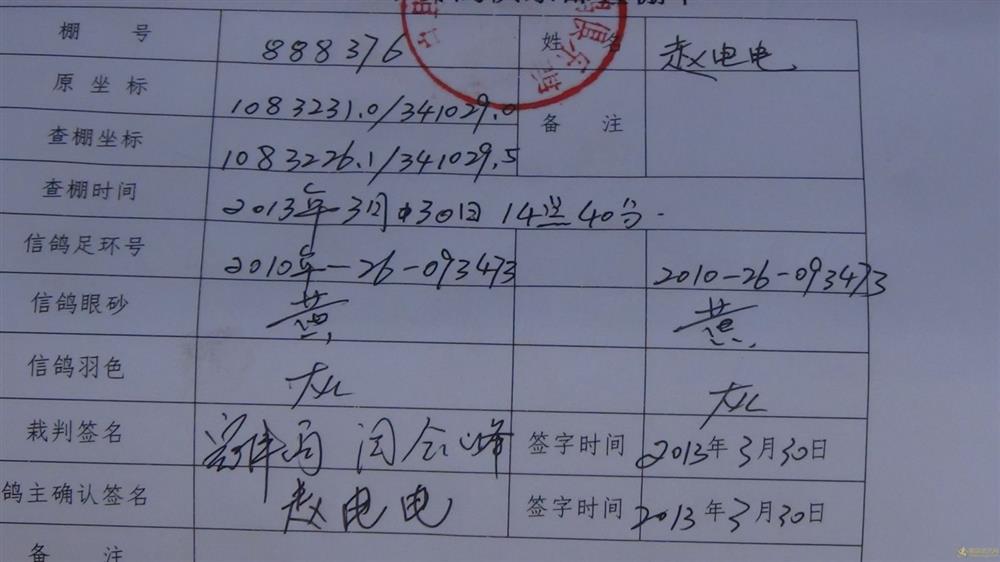 棚 号 888376 姓 名 赵电电
原 坐 标 1083231.0/341029.0
备 注
查棚坐标 1083226.1/341029.5
查棚时间 2013年3月30日 14点40分.
信鸽足环号 2010年-26-093473 2010-26-093473
信鸽眼砂 黄 黄
信鸽羽色 灰 灰
裁判签名 签字时间 2013年3月30日
鸽主确认签名 赵电电 签字时间 2013年3月30日
备 注